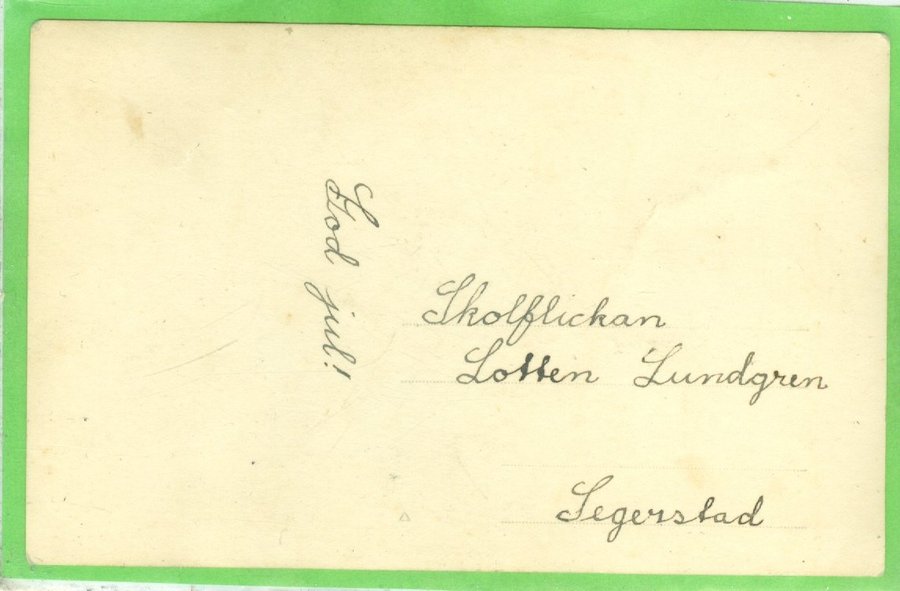 God jul!
Skolflickan
Lotten Lundgren
Segerstad